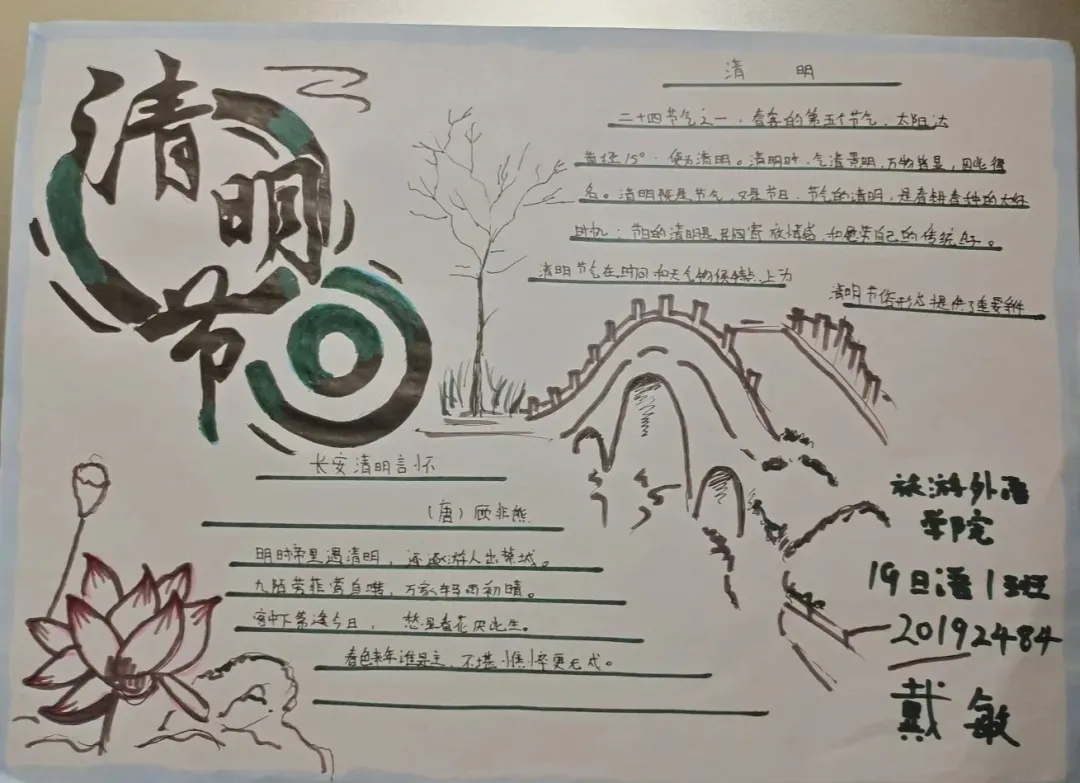 清明节
清 明
二十四节气之一，春季的第五个节气，太阳达
黄经15°，便为清明。清明时，气清景明，万物皆显，因此得
名。清明既是节气，又是节日，节气的清明，是春耕春种的大好
时机；节日的清明是
自己的传统
清明节气在时间和天气物候特点上为
清明节俗 提供了重要条件
长安清明言怀
（唐）顾非熊
明时帝里遇清明，还逐游人出禁城。
九陌芳菲莺自啭，万家车马雨初晴。
客中下第逢今日，愁里看花厌此生。
春色来年谁是主，不堪憔悴更无成。
旅游外语
学院
19日语1班
20192484
戴敏